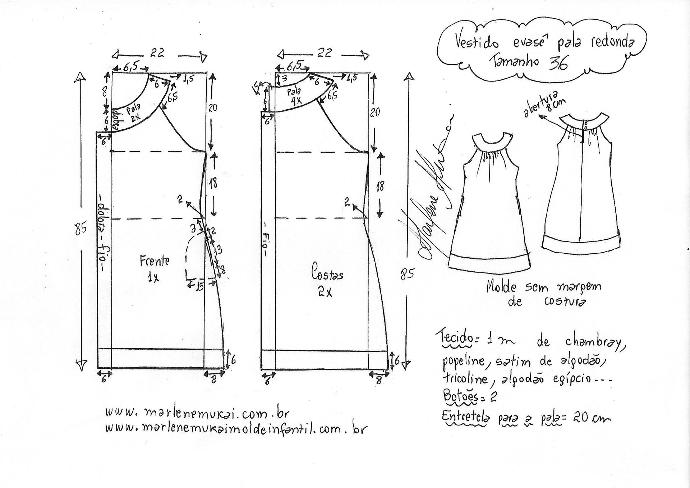 Vestido evasê pala redonda
Tamanho 36
22
6,5
6
1,5
8
6
6,5
Pala
2x
dobra
6
20
18
2
3
2
3
8
15
85
- dobra - fio -
Frente
1x
6
8
22
3
6
1,5
6
6,5
Pala
4x
6
6
20
18
2
- Fio -
Costas
2x
85
6
8
abertura
8 cm
Molde sem margem
de costura
Tecido = 1 m de chambray,
popeline, satim de algodão,
tricoline, algodão egípcio ---
Botões = 2
Entretela para a pala = 20 cm
www.marlenemukai.com.br
www.marlenemukaimoldeinfantil.com.br